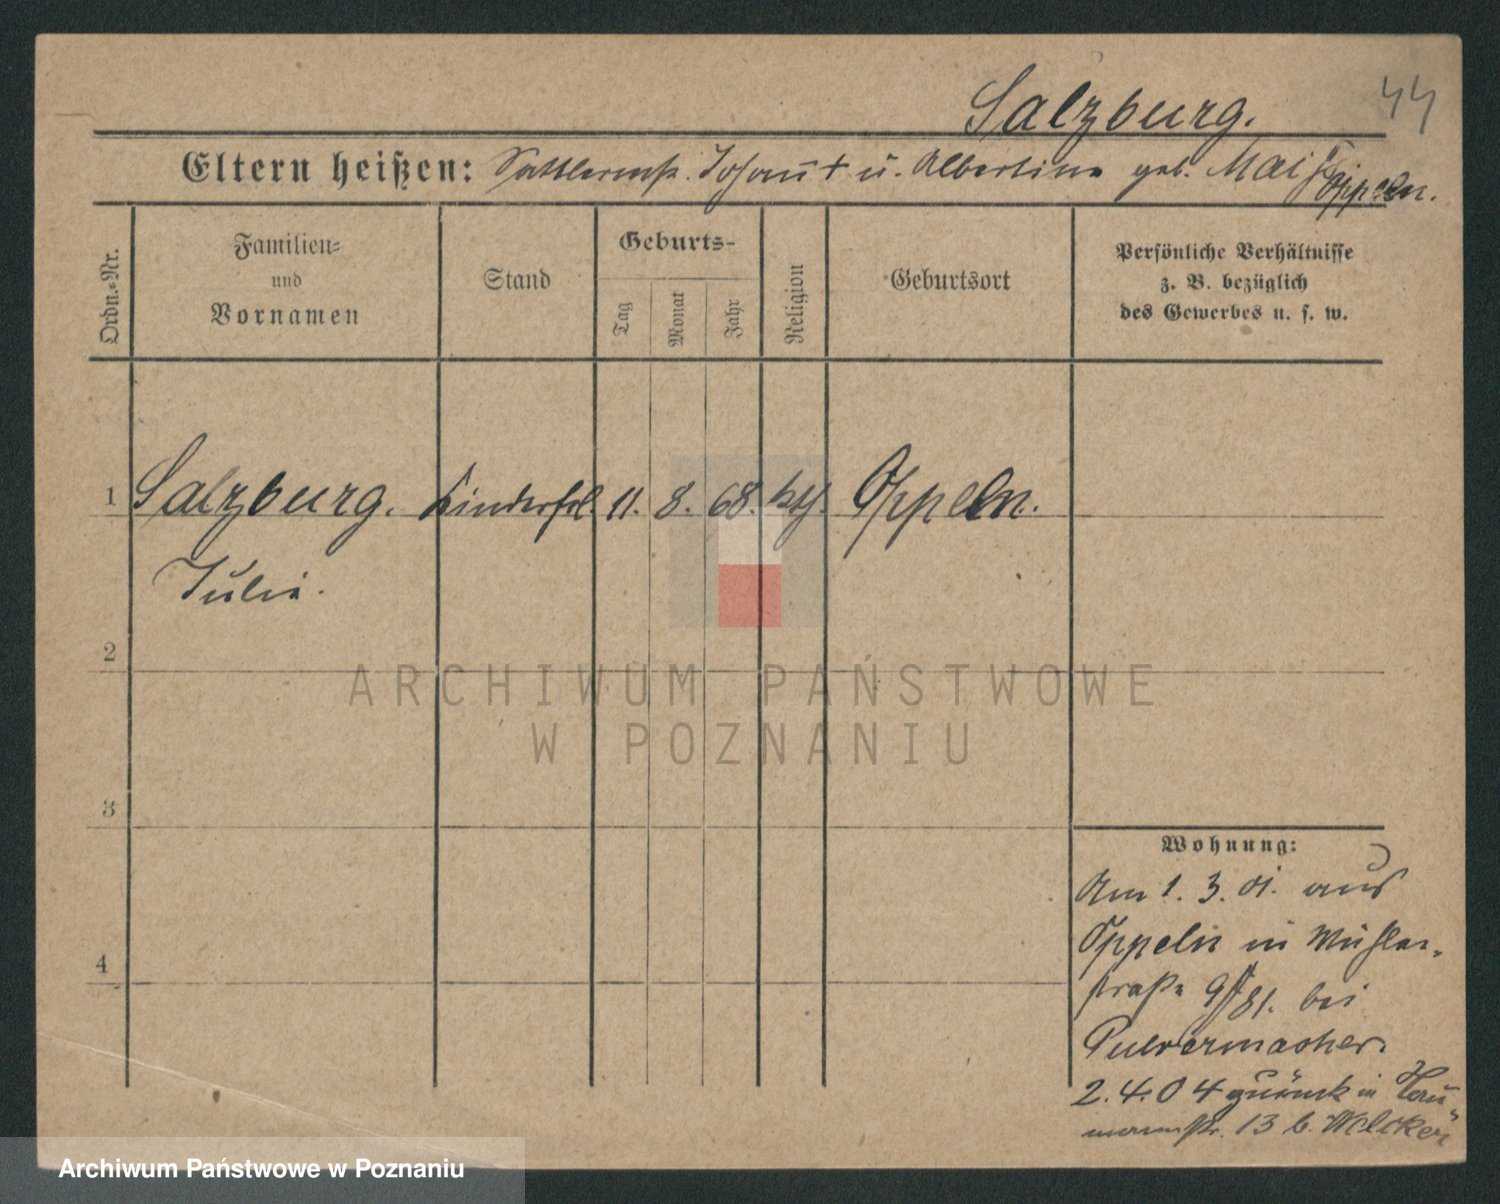 44
Salzburg.
Eltern heißen: Sattlermstr. Johann † u. Albertine geb. Mai
Oppeln.
Ordn.-Nr.
Familien-
und
Vornamen
Stand
Geburts-
Tag
Monat
Jahr
Religion
Geburtsort
Persönliche Verhältnisse
z. B. bezüglich
des Gewerbes u. s. w.
1 Salzburg. Kinderfrl. 11. 8. 68. kth. Oppeln.
Julie.
2
ARCHIWUM PAŃSTWOWE
W POZNANIU
3
Wohnung:
Am 1. 3. 01. aus
Oppeln in Mühlen-
straße 9 bei
Pulvermacher.
4
2. 4. 04 zurück in Nau-
mannstr. 13 b. Welcker
Archiwum Państwowe w Poznaniu